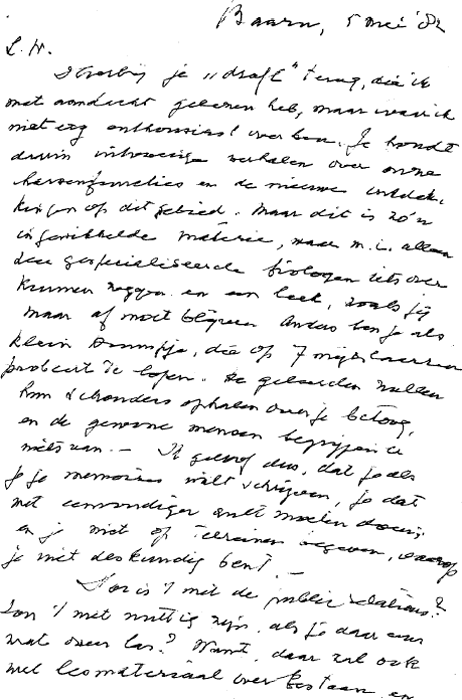 Baarn, 5 mei '82
L. W.
Hierbij je „draft" terug, die ik
met aandacht gelezen heb, maar waar ik
niet erg enthousiast over ben. Je houdt
daarin verhalen over onze
hersenfuncties en de nieuwe ontdek-
kingen op dit gebied. Maar dit is zo'n
ingewikkelde materie, waar m.i. alleen
zeer gespecialiseerde biologen iets over
kunnen zeggen en een leek, zoals jij
maar af moet blijven. Anders ben je als
klein Duimpje, die op 7 mijlslaarzen
probeert te lopen. De geleerden zullen
hun schouders ophalen over je betoog,
en de gewone mensen begrijpen er
niets van. — Ik geloof dus, dat je als
je je memoires wilt schrijven, je dat
met eenvoudiger moeten doen,
en je niet op terreinen begeven, waarop
je niet deskundig bent. —
Hoe is 't met de public relations?
Zou 't niet nuttig zijn, als je daar eens
wat over las? Want daar zal ook
wel lesmateriaal over bestaan en